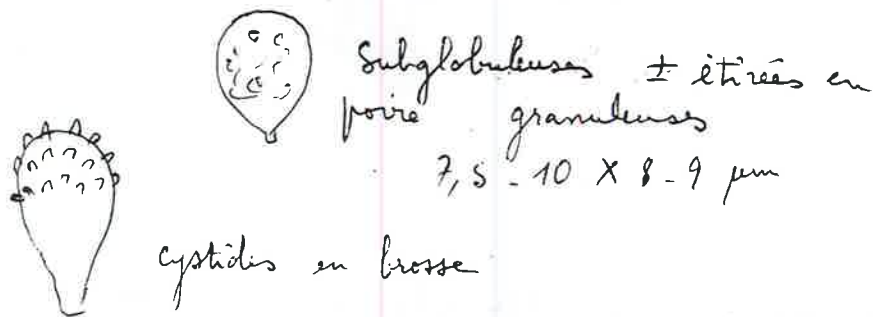 Subglobuleuses ± étirées en
poire granuleuses
7,5 - 10 X 8 - 9 µm
cystides en brosse